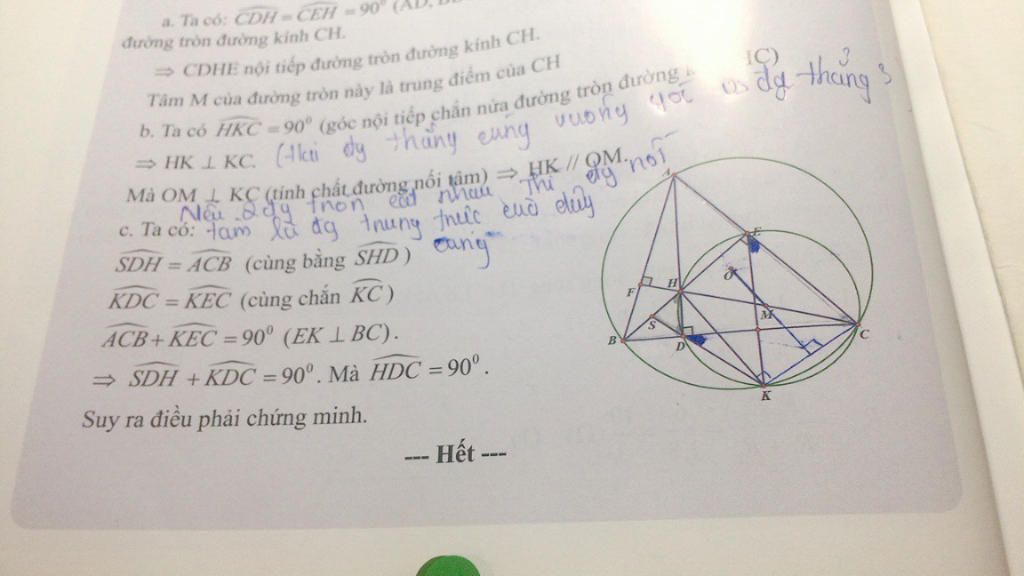 a. Ta có: CDH = CEH = 90⁰ (AD,
đường tròn đường kính CH.
⇒ CDHE nội tiếp đường tròn đường kính CH.
Tâm M của đường tròn này là trung điểm của CH
b. Ta có HKC = 90⁰ (góc nội tiếp chắn nửa đường tròn đường HC)
(Hai đg thẳng cùng vuông góc vs đg thẳng 3
⇒ HK ⊥ KC.
Mà OM ⊥ KC (tính chất đường nối tâm) ⇒ HK // OM.
Nếu 2 đg tròn cắt nhau thì đg nối
c. Ta có: tâm là đg trung trực của dây
SDH = ACB (cùng bằng SHD)
KDC = KEC (cùng chắn KC)
ACB + KEC = 90⁰ (EK ⊥ BC).
⇒ SDH + KDC = 90⁰. Mà HDC = 90⁰.
Suy ra điều phải chứng minh.
--- Hết ---
A
E
O
F
H
S
M
B
D
C
K